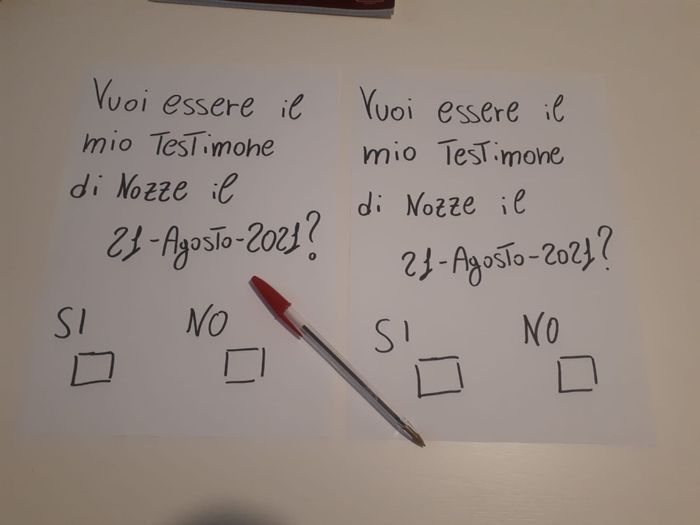 Vuoi essere il
mio Testimone
di Nozze il
21-Agosto-2021?
SI NO
Vuoi essere il
mio Testimone
di Nozze il
21-Agosto-2021?
SI NO